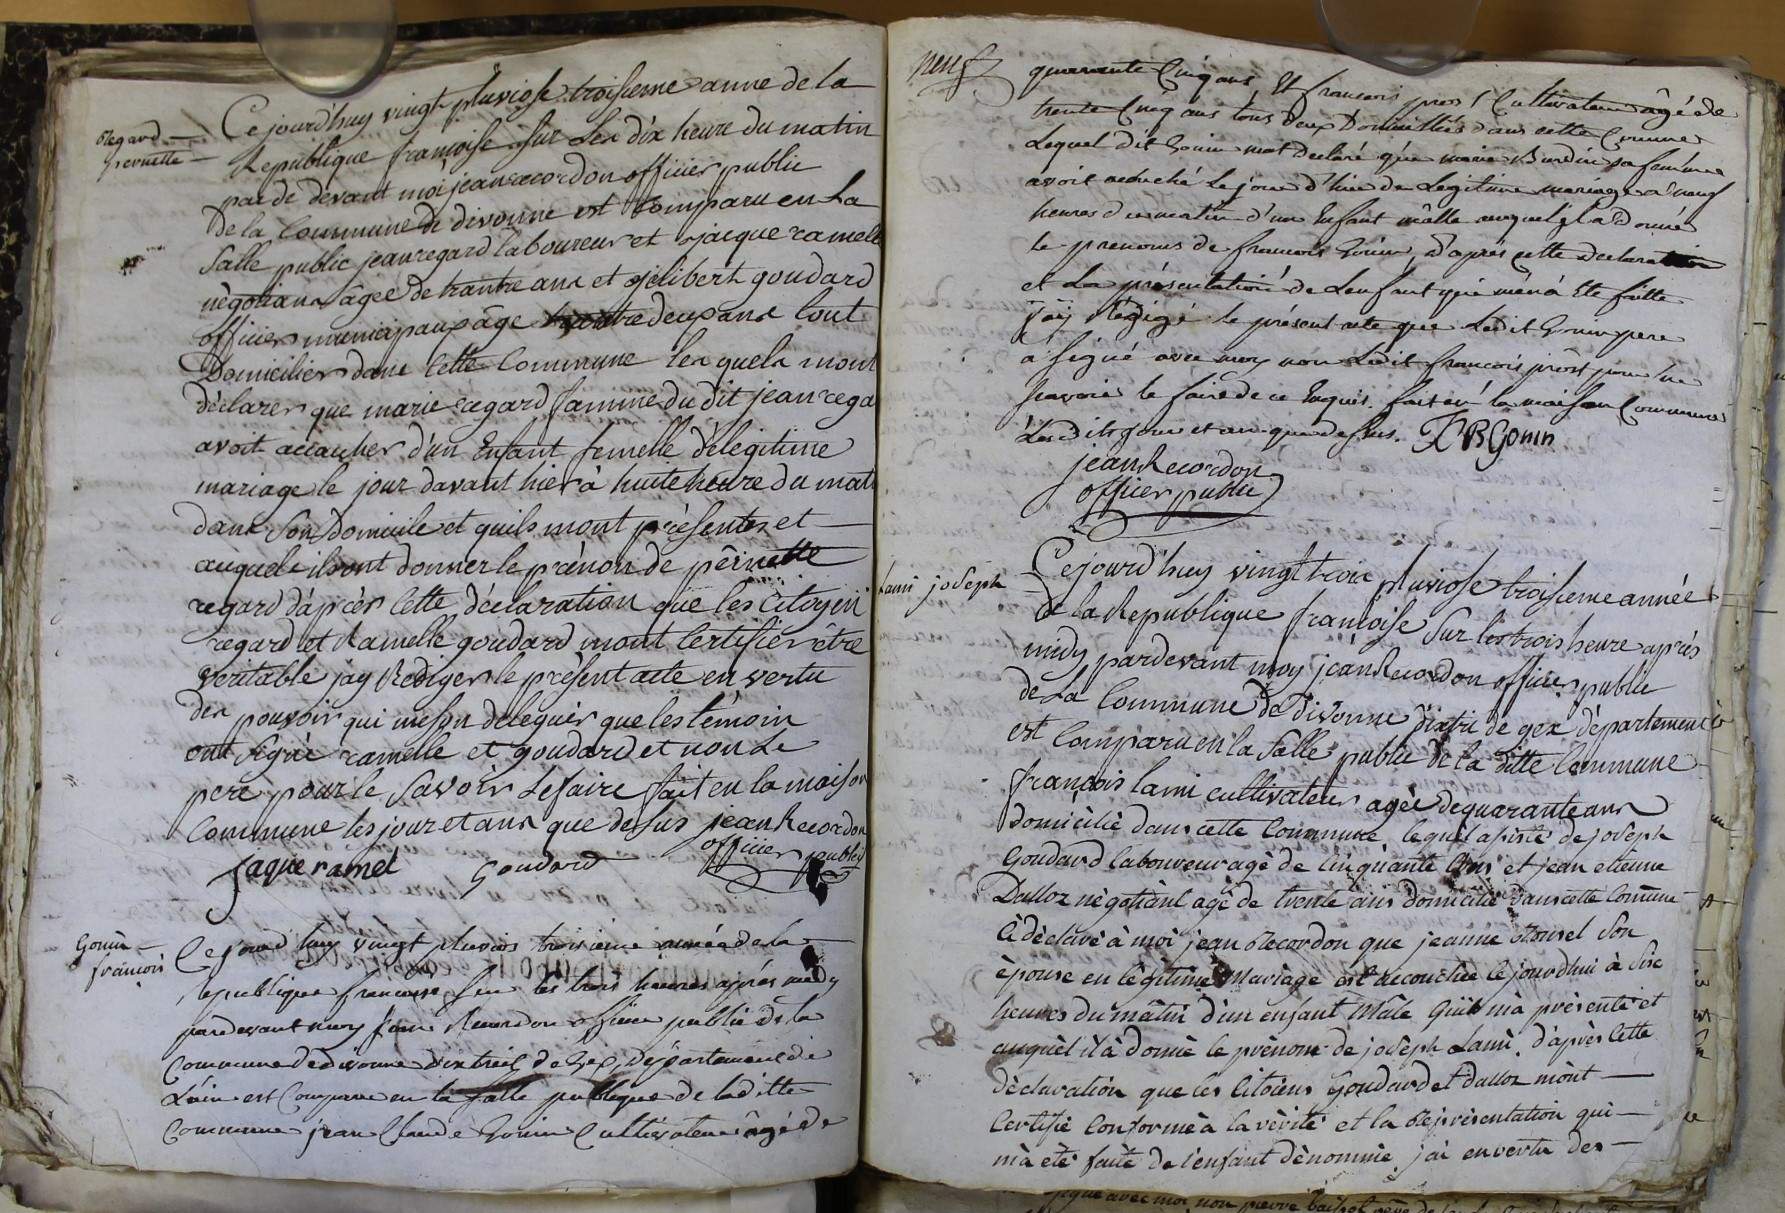 Regard
pernette
Ce jourd'huy vingt pluviose troisieme anne de la
Republique françoise sur les dix heure du matin
par de devant moi jean recordon officier public
de la Commune de divonne est Comparu en la
Salle public jean regard laboureur et jacque ramell
négotians âgée de trantre ans et gélibert goudard
officier municipaux âge deux ans tout
Domicilier dans cette Commune les quels mont
déclarer que marie regard famme du dit jean rega
avoit accaucher d'un Enfant femelle de légitime
mariage le jour davant hier à huite heure du mati
dans Son Domicile et quils mont présenter et
auquele ils ont donner le prénon de pérnette
regard dáprès cette déclaration que les Citoyen
regard et Ramelle goudard mont Certifier être
veritable jay Rediger le présent acte en vertu
des pouvoir qui me son déléguér que les témoin
ont Signé ramelle et goudard et non le
pere pour le Savoir le faire fait en la maison
Commune les jour et ans que desus jean Recordon
officier public
Jaque ramel Goudard
Gonin
françois
Ce jourd huy vingt pluvios troisieme année de la
republique francoise sur les trois heures après midy
pardevant moy Jean Recordon officier public de la
Commune de divonne District de Gex Département de
L'ain est Comparu en la salle publique de la ditte
Commune jean Claude Gonin Cultivateur âgé de
neuf
quarante Cinq ans Et francois pros Cultivateur âgé de
trente Cinq ans tous deux Domiciliés dans cette Commune
Lequel dit Gonin mat Declaré que marie Burdin sa femme
avoit acouché Le jour d'hier de Legitime mariage a neuf
heures du matin d'un Enfant mâlle auquel il a Donné
le prenoms de francois Gonin d'après cette declaration
et la présentation de Lenfant qui m'en à Eté faitte
j'ay rédigé le présent acte que Ledit Gonin pere
a signé avec moy non Ledit francois prost pour ne
scavoir le faire de ce Enquis. fait en la maison Commune
Les dits jour et an que dessus. J C B Gonin
jean Recordon
officier public
Lami joseph
Ce jourd'huy vingt trois pluviose troisieme année
de la Republique françoise Sur les trois heure après
midy pardevant moy jean Recordon officier public
de La Commune de Divonne distri de gex département
est Comparu en la Salle public de la ditte Commune
françois lami cultivateur agée de quarante ans
domicilié dans cette Commune lequel assisté de joseph
Goudard laboureur agé de Cinquante Ans et jean etienne
Dalloz négotiant agé de trente ans domicilié dans cette Comune
à déclaré à moi jean Recordon que jeanne Son
épouse en légitime Mariage est accouchée le jourdhui à Six
heures du mâtin d'un enfant Mâle Quil ma présenté et
auquel il à donné le prénom de joseph Lami. d'après Cette
déclaration que les Citoiens Goudard et dalloz mont
Certifié Conforme à la vérité et la Représentation qui
mà eté faite de l'enfant dénommé jai en vertu des